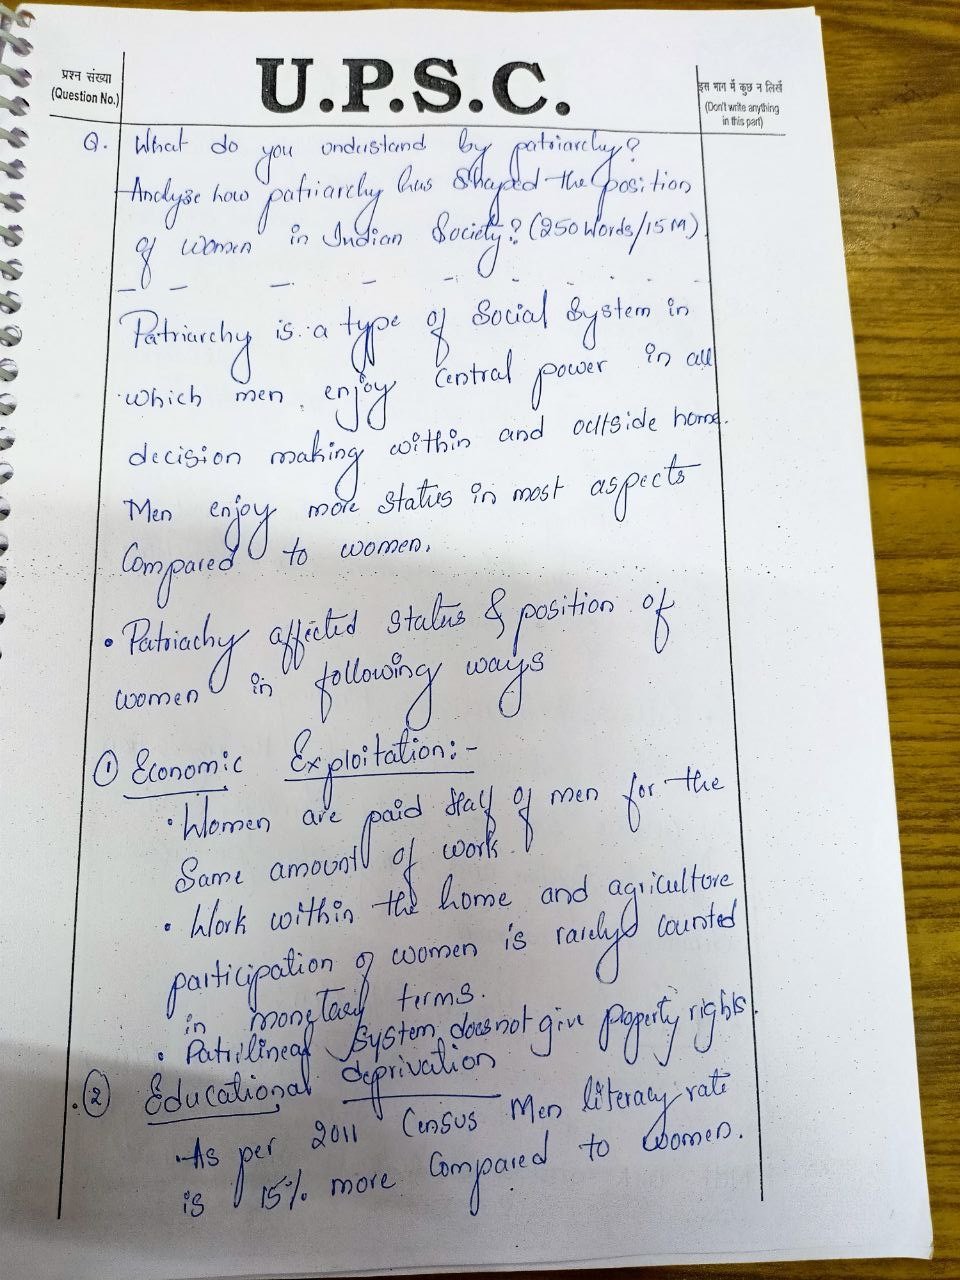 प्रश्न संख्या
(Question No.)
U.P.S.C.
इस भाग में कुछ न लिखें
(Don't write anything
in this part)
Q. What do you understand by patriarchy?
Analyse how patriarchy has shaped the position
of women in Indian Society? (250 Words/15M)
Patriarchy is a type of Social System in
which men enjoy Central power in all
decision making within and outside home.
Men enjoy more status in most aspects
Compared to women.
• Patriachy affected status & position of
women in following ways
① Economic Exploitation:-
• Women are paid Half of men for the
Same amount of work.
• Work within the home and agriculture
participation of women is rarely counted
in monetary terms.
• Patrilineal System does not give property rights.
② Educational deprivation
• As per 2011 Census Men literacy rate
is 15% more Compared to Women.